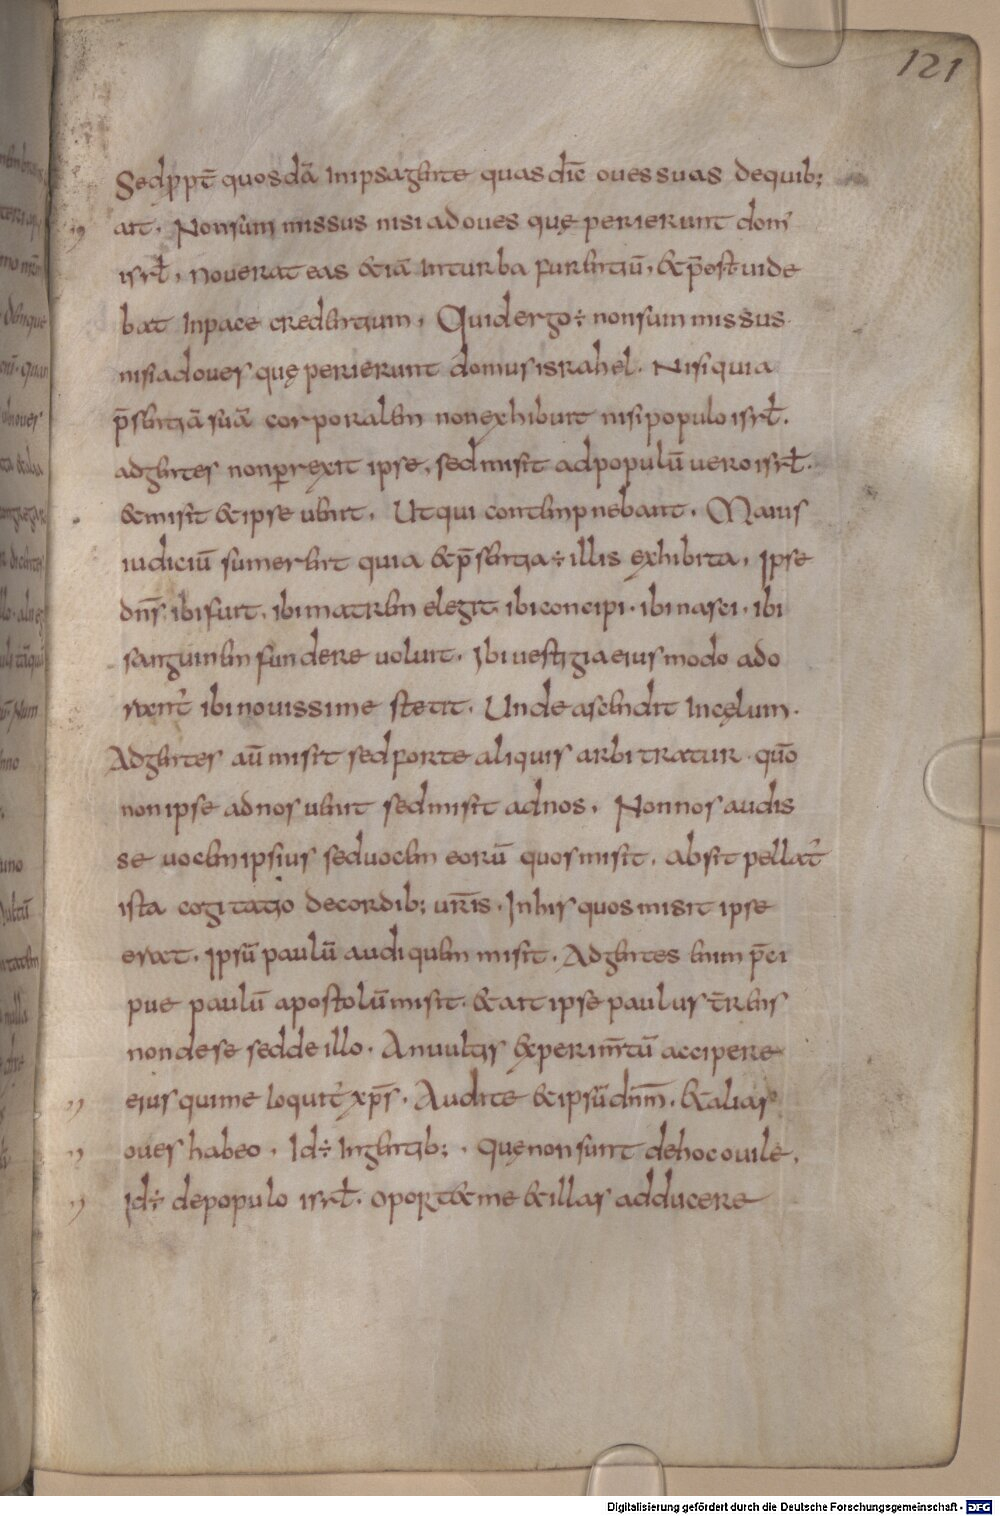 121
Sedp̄pt̄ quosdā inipsagente quas dic̄ ouessuas dequib;
ait. Nonsum missus nisi adoues quę perierunt dom̄
isrł. nouerat eas &iā inturba furentiū, &p̄est uide
bat inpace credentium. Quid ergo ÷ nonsum missus
nisiadoues quę perierunt domus israhel. Nisi quia
p̄sentiā suā corporalem nonexhibuit nisi populo isrł.
adgentes nonperrexit ipse, sed misit adpopulū uero isrł.
&misit &ipse uenit. Ut qui contempnebant. Maius
iudiciū sumerent quia &p̄sentia ÷ illis exhibita. Ipse
dn̄s ibi fuit. ibi matrem elegit. ibi concipi. ibi nasci. ibi
sanguinem fundere uoluit. Ibi uestigia eius modo ado
rant̄ ibi nouissime stetit. Unde ascendit incęlum.
Adgentes aū misit sed forte aliquis arbitratur quō
non ipse adnos uenit sed misit adnos. Nonnos audis
se uocem ipsius sed uocem eorū quos misit. absit pellat̄
ista cogitatio decordib; ur̄is. Inhis quos misit ipse
erat. Ipsū paulū audi quem misit. Adgentes enim p̄ci
pue paulū apostolū misit. &ait ipse paulus t̄rens
non dese sed de illo. An uultis experim̄tū accipere
eius qui in me loquit̄ xp̄s. Audite &ipsū dn̄m. &alias
oues habeo. Id÷ ingentib;. quęnon sunt de hoc ouile.
Id÷ depopulo isrł. oport&me &illas adducere
Digitalisierung gefördert durch die Deutsche Forschungsgemeinschaft - DFG